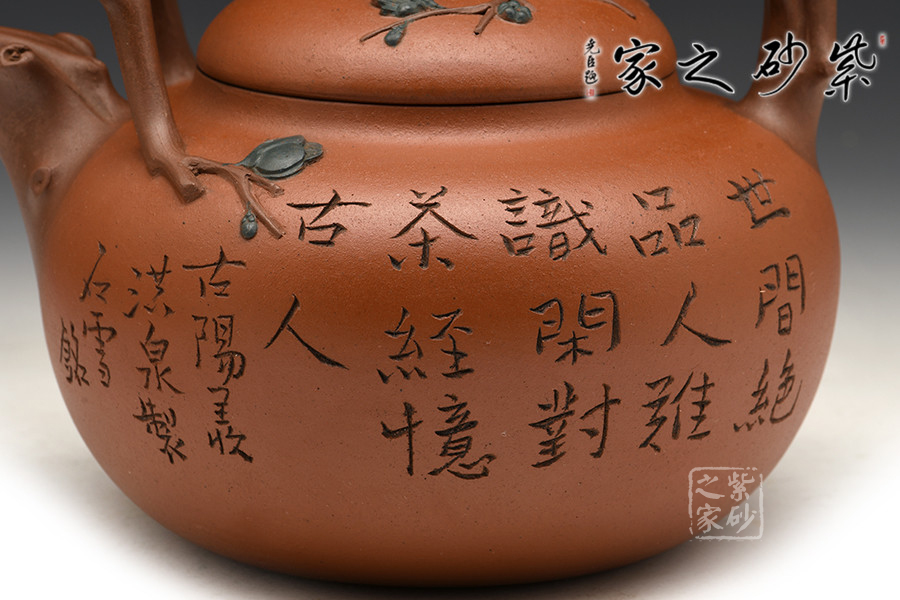 紫砂之家
世間絶
品人難
識閑對
茶経憶
古人
古陽
洪泉製
雪
紫砂
之家